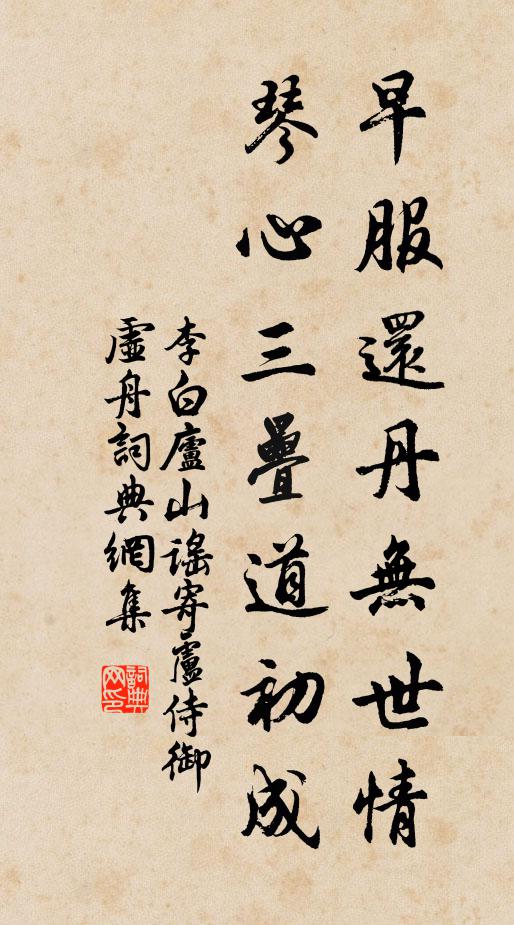 早服還丹無世情
琴心三疊道初成
李白廬山謠寄盧侍御
虛舟詞典網集
詞典网印